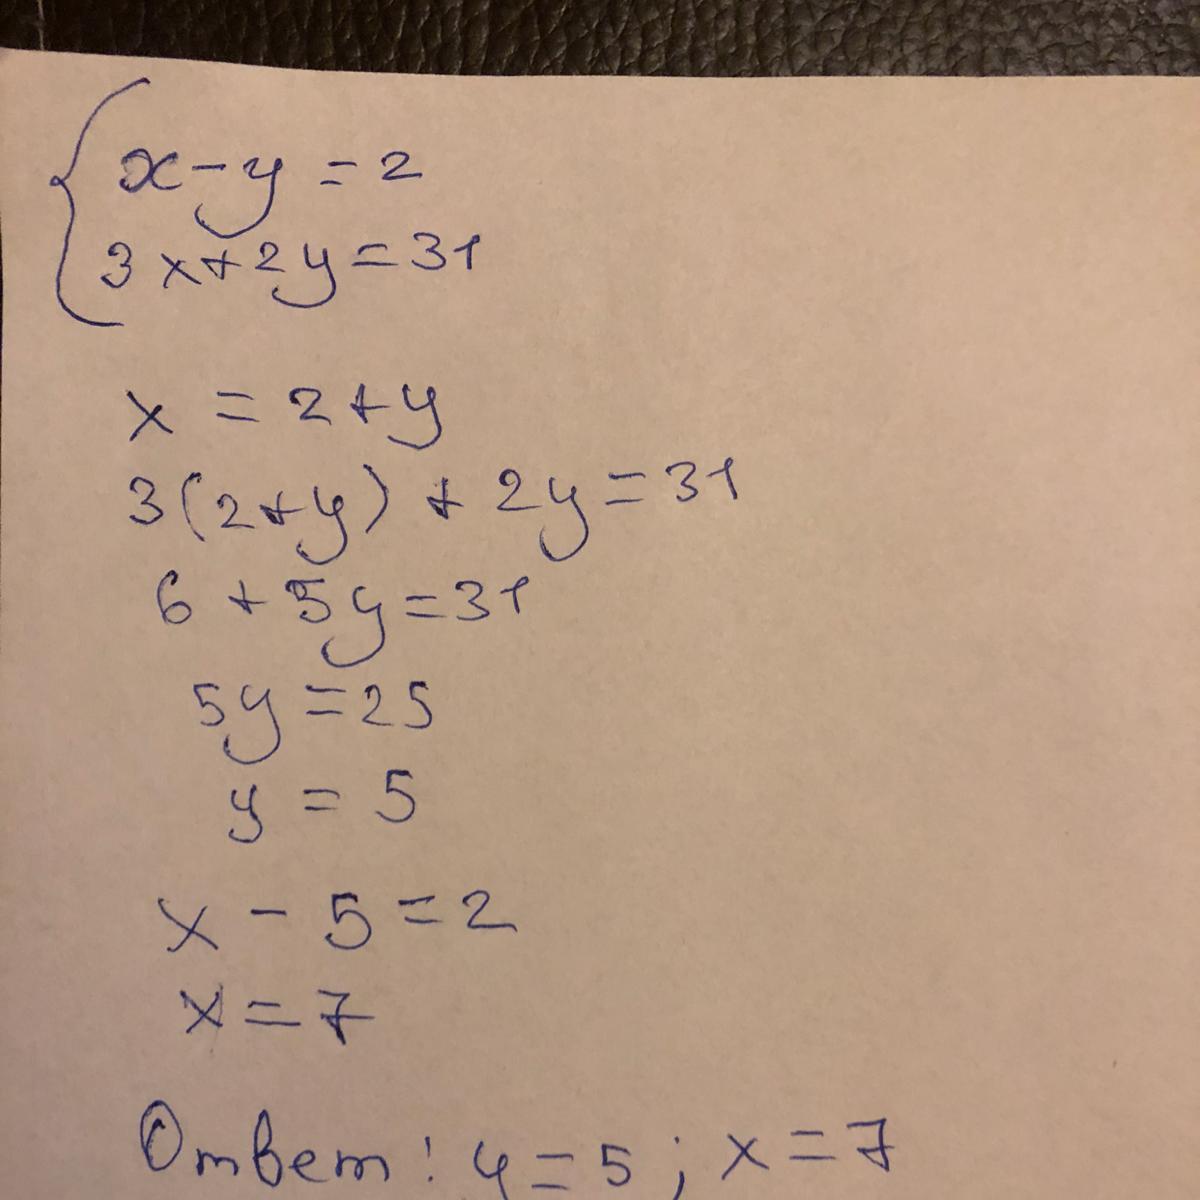 x - y = 2
3x + 2y = 31
x = 2 + y
3(2 + y) + 2y = 31
6 + 5y = 31
5y = 25
y = 5
x - 5 = 2
x = 7
Ответ: y = 5; x = 7